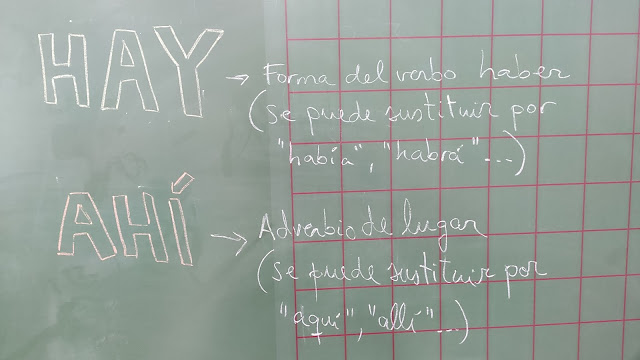 HAY → Forma del verbo haber
(se puede sustituir por
"había", "habrá"...)
AHÍ → Adverbio de lugar
(se puede sustituir por
"aquí", "allí"...)